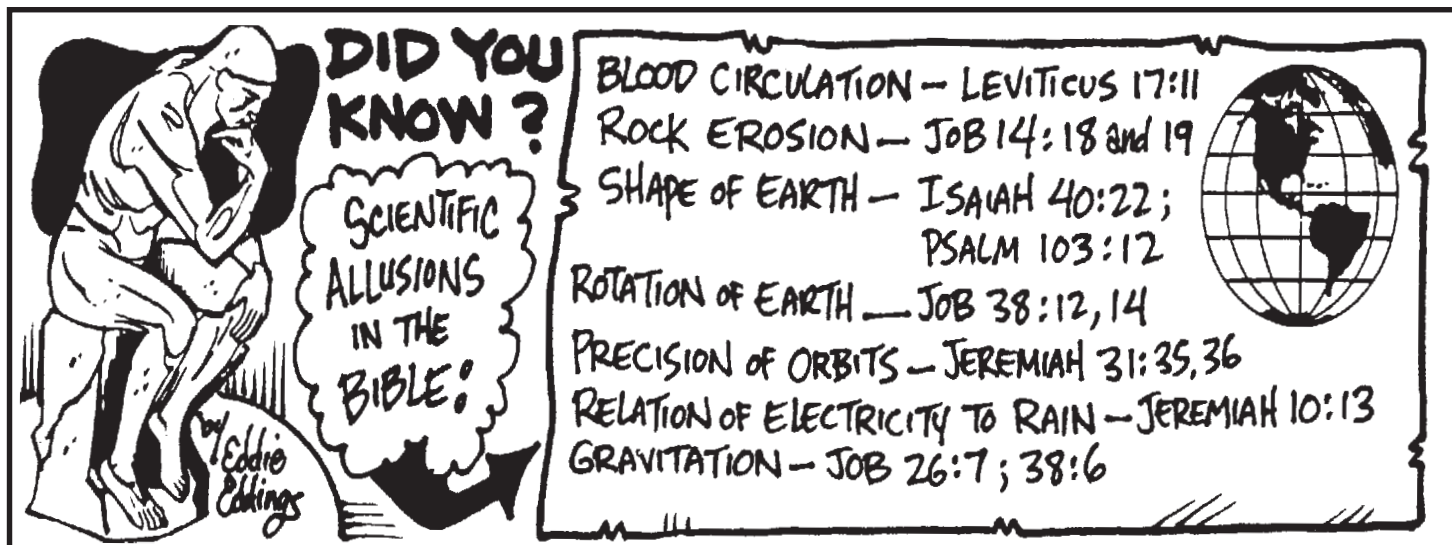 DID YOU
KNOW?
SCIENTIFIC
ALLUSIONS
IN THE
BIBLE:
by
Eddie
Eddings
BLOOD CIRCULATION – LEVITICUS 17:11
ROCK EROSION – JOB 14:18 and 19
SHAPE OF EARTH – ISAIAH 40:22;
PSALM 103:12
ROTATION OF EARTH — JOB 38:12, 14
PRECISION OF ORBITS – JEREMIAH 31:35,36
RELATION OF ELECTRICITY TO RAIN – JEREMIAH 10:13
GRAVITATION – JOB 26:7; 38:6